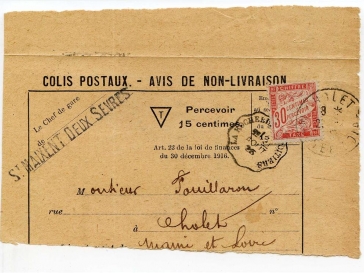 COLIS POSTAUX. - AVIS DE NON-LIVRAISON
Le Chef de gare
de
St MAIXENT DEUX SEVRES.
T
Percevoir
15 centimes
Art. 22 de la loi de finances
du 30 décembre 1916.
A CHIFFRE
30
CENTIMES
TAXE
CHOLET
Monsieur Fouillaron
rue n°
à Cholet
Maine et Loire